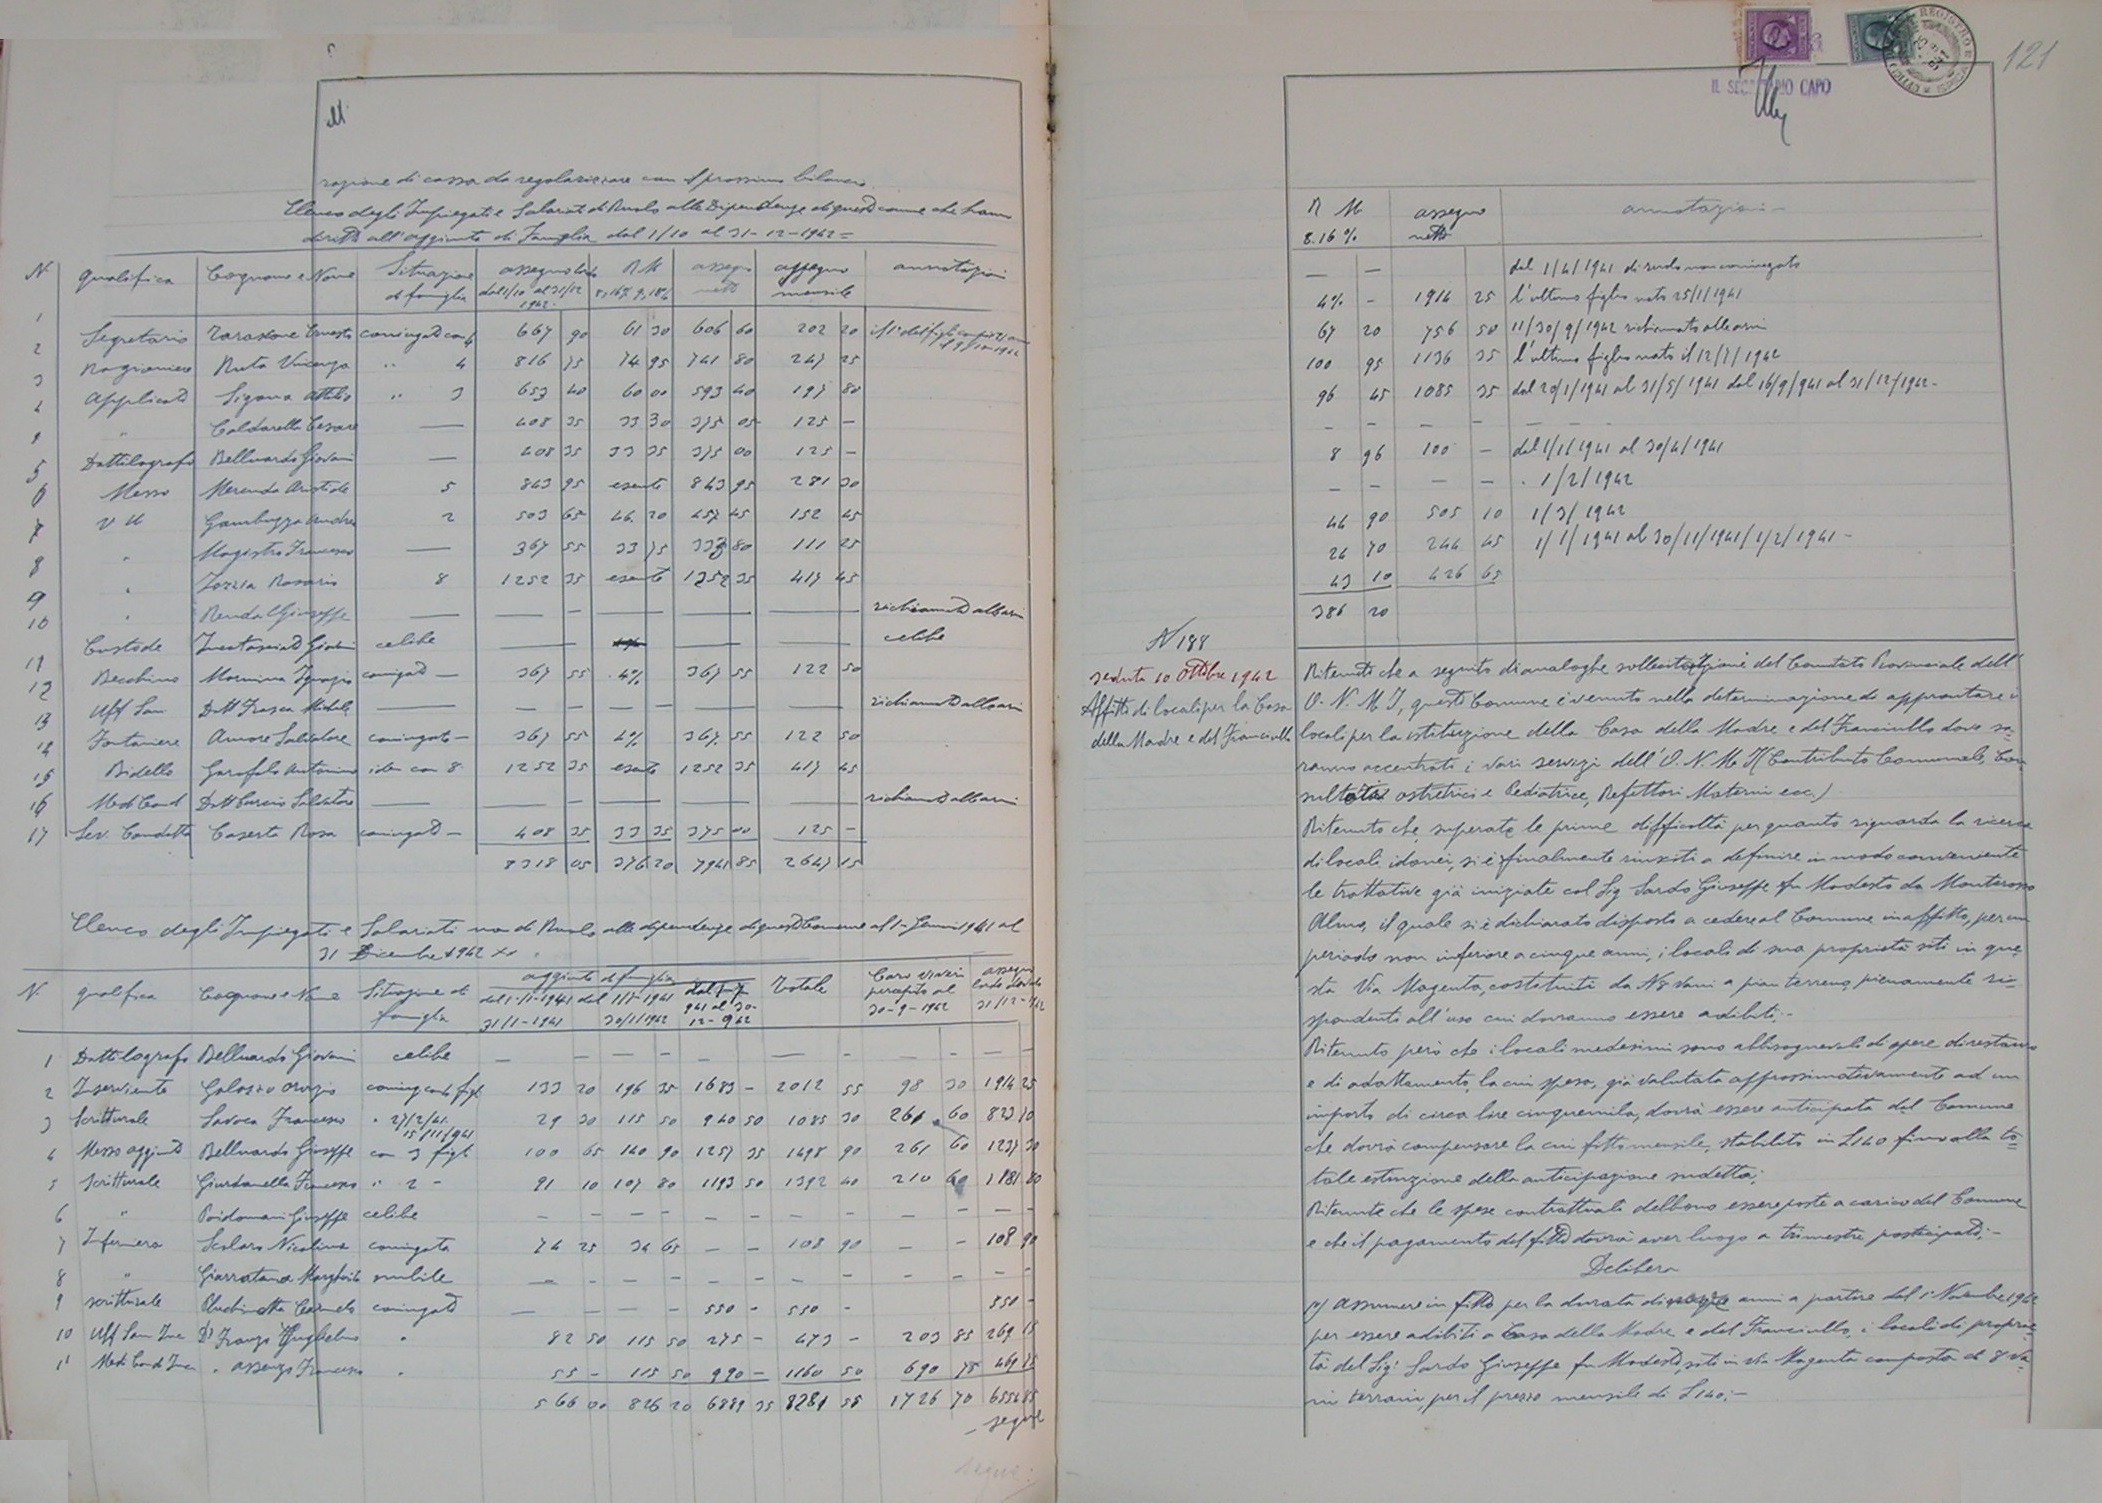 razione di cassa da regolarizzare con prossimo bilancio.
Elenco degli Impiegati e Salariati di Ruolo alle Dipendenze di questo comune che hanno
diritto all'aggiunta di Famiglia dal 1/10 al 31-12-1942=
N. qualifica Cognome e Nome Situazione di famiglia assegno lordo dal 1/10 al 31/12 1942 R.M. assegno netto assegno mensile annotazioni
1 Segretario Ernesto coniugato con 4 667 90 61 30 606 60 202 20
2 Ragioniere Ruta Vincenzo " 4 816 75 74 95 741 80 247 25
3 Applicato Sigona Attilio " 3 653 40 60 00 593 40 197 80
4 " Caldarella Cesare — 408 35 33 30 375 05 125 —
Dattilografo Belluardo Giovanni — 408 35 33 35 375 00 125 —
5 Messo Merenda Aristide 5 843 95 esente 843 95 281 30
6 V U Gambuzza Andrea 2 503 65 46 20 457 45 152 45
7 " Magistro Francesco — 367 55 33 75 333 80 111 25
8 " Iozzia Rosario 8 1252 35 esente 1252 35 417 45
9 " Renda Giuseppe — — — — — richiamato alle armi
10 Custode Giovanni celibe — — — — celibe
11 Becchino Mormina Ignazio coniugato — 367 55 4% 367 55 122 50
12 Uff San Dott Frasca Michele — — — — — richiamato alle armi
13 Fontaniere Amore Salvatore coniugato — 367 55 4% 367 55 122 50
14 Bidello Garofalo Antonino idem con 8 1252 35 esente 1252 35 417 45
15 Med Cond Dott Curcio Salvatore — — — — — richiamato alle armi
16 Lev. Condotta Caserta Rosa coniugata — 408 35 33 35 375 00 125 —
17
8318 05 376 20 7941 85 2647 15
Elenco degli Impiegati e Salariati non di Ruolo alle dipendenze di questo Comune al 1- Gennaio 1941 al
31 Dicembre 1942 XX
N. qualifica Cognome e Nome Situazione di famiglia aggiunta di famiglia dal 1-1-1941 31/1-1941 dal 1/7-1941 30/1/1942 dal 1-7- 941 al 30-12-942 Totale Caro viveri percepito al 30-9-1942 assegno lordo 31/12-942
1 Dattilografo Belluardo Giovanni celibe — — — — — — — —
2 Inserviente Galazzo Orazio coniug con 4 figli 133 20 196 35 1683 — 2012 55 98 30 1914 25
3 Scritturale Savoca Francesco " 27/2/41. 15/11/941 29 30 115 50 940 50 1085 30 261 60 823 70
4 Messo aggiunto Belluardo Giuseppe con 3 figli 100 65 140 90 1257 35 1498 90 261 60 1237 30
5 Scritturale Giurdanella Francesco " 2 - 91 10 107 80 1193 50 1392 40 210 60 1181 80
6 " Poidomani Giuseppe celibe — — — — — — — —
7 Infermiera Scolaro Nicolina coniugata 74 25 34 65 — — 108 90 — — 108 90
8 " Giarratana Margherita nubile — — — — — — —
9 scritturale Carmelo coniugato — — — — 550 — 550 — 550 —
10 Uff San Inc Dr Franzo Guglielmo " 82 50 115 50 275 — 473 — 203 85 269 15
11 Med Cond Inc " Assenzo Francesco " 55 — 115 50 990 — 1160 50 690 75 469 75
566 00 826 20 6889 35 8281 55 1726 70 6554 85
- segue
segue:
121
IL SEGRETARIO CAPO
R M 8.16% assegno netto annotazioni -
— — dal 1/4/1941 di ruolo non coniugato
4% - 1914 25 l'ultimo figlio nato 25/1/1941
67 20 756 50 11/30/9/1942 richiamato alle armi
100 95 1136 35 l'ultimo figlio nato il 12/7/1942
96 45 1085 35 dal 20/1/1941 al 31/5/1941 dal 16/9/941 al 31/12/1942-
— — — — —
8 96 100 — dal 1/1/1941 al 30/4/1941
— — — — . 1/2/1942
44 90 505 10 1/3/1942
24 70 244 45 1/1/1941 al 30/11/1941/1/2/1941 -
43 10 426 65
386 20
N 188
seduta 10 Ottobre 1942
Affitto di locali per la Casa
della Madre e del Fanciullo
Ritenuto che a seguito di analoghe sollecitazioni del Comitato Provinciale dell'
O. N. M. I, questo Comune è venuto nella determinazione di approntare i
locali per la istituzione della Casa della Madre e del Fanciullo dove sa-
ranno accentrati i vari servizi dell'O. N. M. I (Contributo Comunale, Con
sultori ostetrici e Pediatrici, Refettori Materni ecc.)
Ritenuto che, superate le prime difficoltà per quanto riguarda la ricerca
di locali idonei, si è finalmente riusciti a definire in modo conveniente
le trattative già iniziate col Sig Sardo Giuseppe fu Modesto da Monterosso
Almo, il quale si è dichiarato disposto a cedere al Comune in affitto, per un
periodo non inferiore a cinque anni, i locali di sua proprietà siti in que-
sta Via Magenta, costituiti da N 8 vani a pian terreno, pienamente ri-
spondenti all'uso cui dovranno essere adibiti.-
Ritenuto però che i locali medesimi sono abbisognevoli di opere di restauro
e di adattamento, la cui spesa, già valutata approssimativamente ad un
importo di circa lire cinquemila, dovrà essere anticipata dal Comune
che dovrà compensare la cui fitto mensile, stabilito in L 140 fino alla to-
tale estinzione della anticipazione sudetta;
Ritenuto che le spese contrattuali debbono essere poste a carico del Comune
e che il pagamento del fitto dovrà aver luogo a trimestre posticipato;-
Delibera
1°) Assumere in fitto per la durata di anni a partire dal 1° Novembre 1942
per essere adibiti a Casa della Madre e del Fanciullo, i locali di proprie-
tà del Sig: Sardo Giuseppe fu Modesto, siti in via Magenta composta di 8 va-
ni terrani, per il prezzo mensile di L 140;-